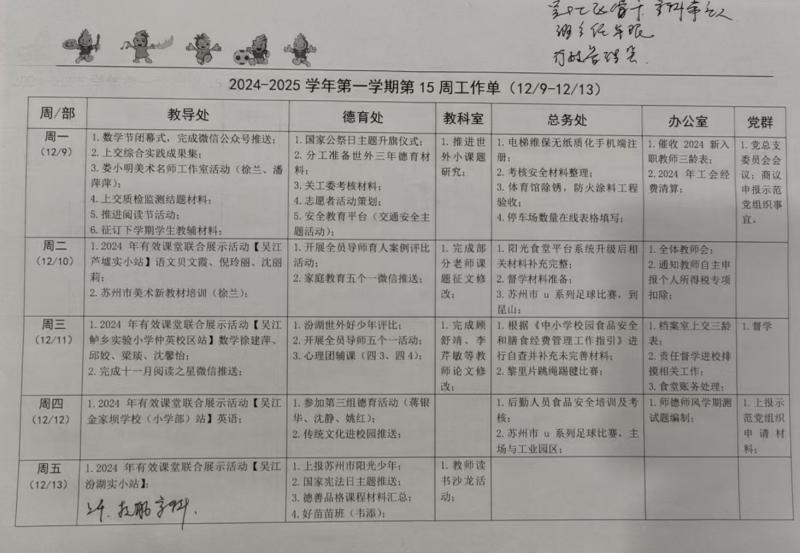 2024-2025 学年第一学期第 15 周工作单（12/9-12/13）
周/部 教导处 德育处 教科室 总务处 办公室 党群
周一
（12/9）
1.数学节闭幕式，完成微信公众号推送；
2.上交综合实践成果集；
3.娄小明美术名师工作室活动（徐兰、潘
萍萍）；
4.上交质检监测结题材料；
5.推进阅读节活动；
6.征订下学期学生教辅材料；
1.国家公祭日主题升旗仪式；
2.分工准备世外三年德育材
料；
3.关工委考核材料；
4.志愿者活动策划；
5.安全教育平台（交通安全主
题活动）；
1.推进世
外小课题
研究；
1.电梯维保无纸质化手机端注
册；
2.考核安全材料整理；
3.体育馆除锈，防火涂料工程
验收；
4.停车场数量在线表格填写；
1.催收 2024 新入
职教师三龄表；
2.2024 年工会经
费清算；
1.党总支
委员会会
议；商议
申报示范
党组织事
宜。
周二
（12/10）
1.2024 年有效课堂联合展示活动【吴江
芦墟实小站】语文贝文霞、倪玲丽、沈丽
莉；
2.苏州市美术新教材培训（徐兰）；
1.开展全员导师育人案例评比
活动；
2.家庭教育五个一微信推送；
1.完成部
分老师课
题征文修
改；
1.阳光食堂平台系统升级后相
关材料补充完整；
2.督学材料准备；
3.苏州市 u 系列足球比赛，到
昆山；
1.全体教师会；
2.通知教师自主申
报个人所得税专项
扣除；
周三
（12/11）
1.2024 年有效课堂联合展示活动【吴江
鲈乡实验小学仲英校区站】数学徐建萍、
邱姣、梁琰、沈馨怡；
2.完成十一月阅读之星微信推送；
1.汾湖世外好少年评比；
2.开展全员导师五个一活动；
3.心理团辅课（四 3、四 4）；
1.完成顾
舒靖、李
芹敏等教
师论文修
改；
1.根据《中小学校园食品安全
和膳食经费管理工作指引》进
行自查并补充未完善材料；
2.黎里片跳绳踢毽比赛；
1.档案室上交三龄
表；
2.责任督学进校排
摸相关工作；
3.食堂账务处理；
1.督学
周四
（12/12）
1.2024 年有效课堂联合展示活动【吴江
金家坝学校（小学部）站】英语；
1.参加第三组德育活动（蒋银
华、沈静、姚红）；
2.传统文化进校园推送；
1.后勤人员食品安全培训及考
核；
2.苏州市 u 系列足球比赛，主
场与工业园区；
1.师德师风学期测
试题编制；
1.上报示
范党组织
申请材
料；
周五
（12/13）
1.2024 年有效课堂联合展示活动【吴江
汾湖实小站】；
1.上报苏州市阳光少年；
2.国家宪法日主题推送；
3.德善品格课程材料汇总；
4.好苗苗班（韦添）；
1.教师读
书沙龙活
动；